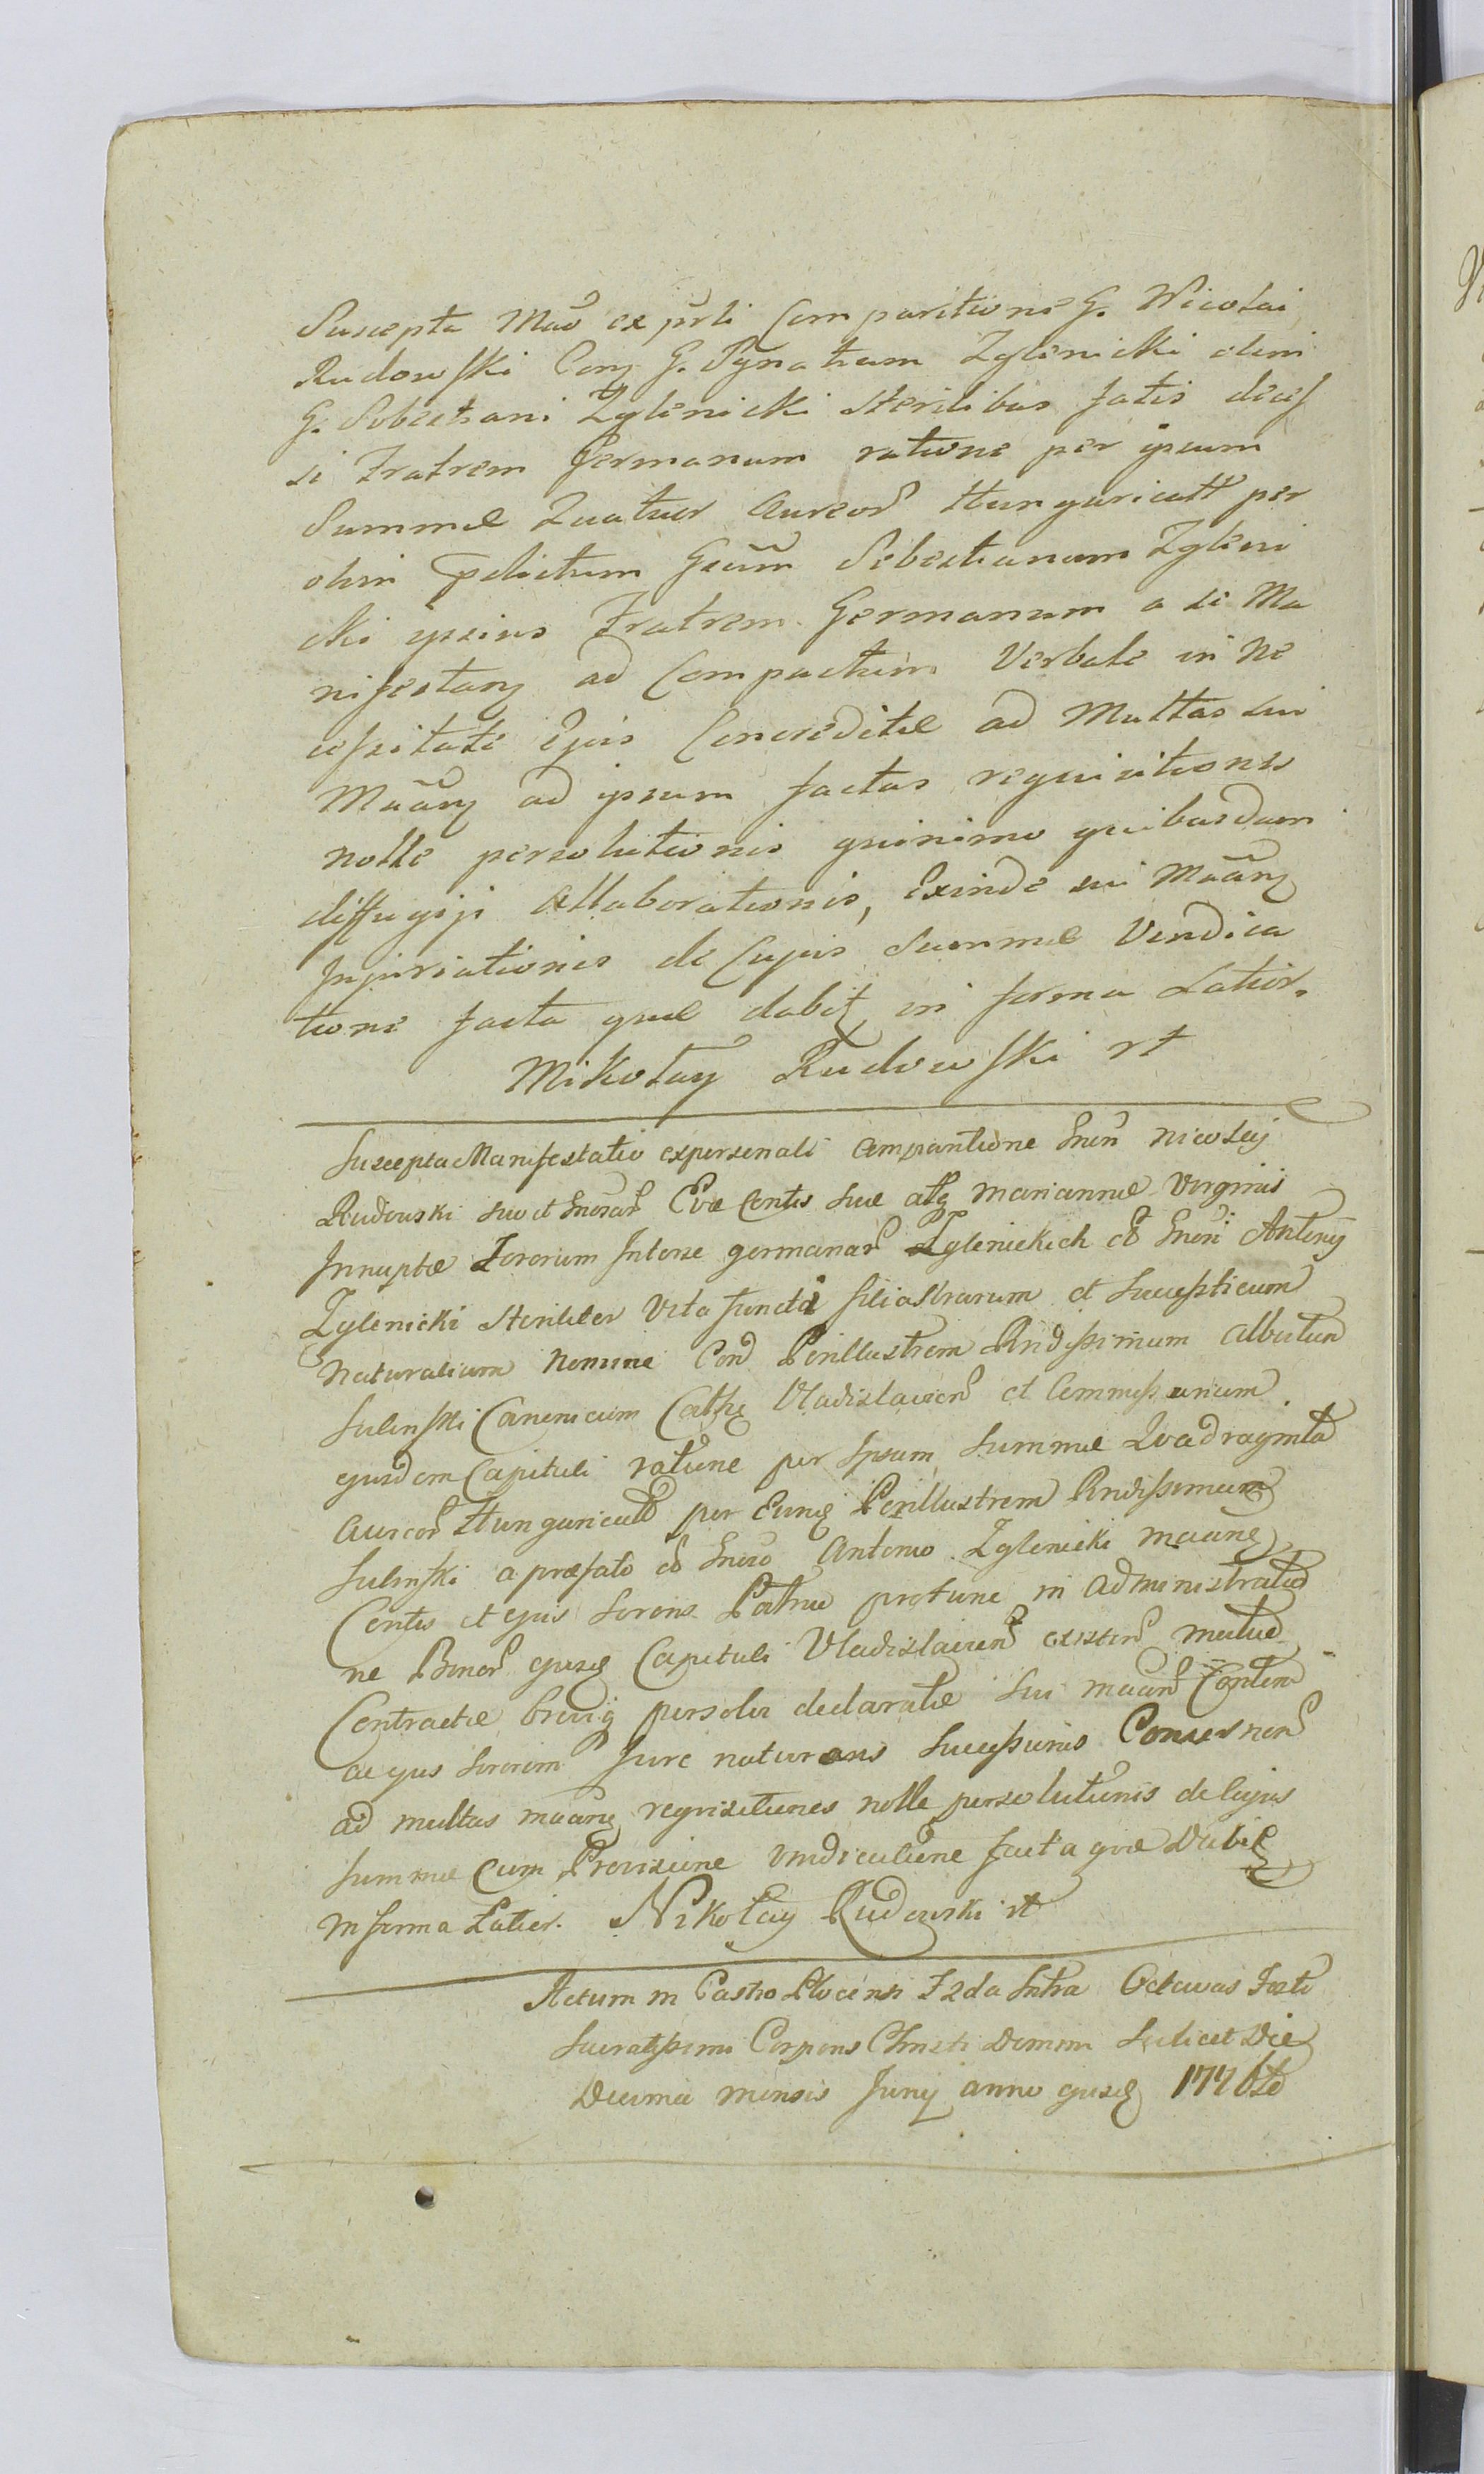 Suscepta Mão ex prli Comparitione G. Nicolai
Rudowski Con̄ G. Ignatium Zglenicki olim
G. Sebestiani Zglenicki Sterilibus fatis decef
si Fratrem Germanum ratione per ipsum
Summæ Quatuor Aureor̃ Hungaricall per
olim pdictum Gsũm Sebestianum Zgleni
cki ipsius Fratrem Germanum a se Ma
nifestan̄ ad Compactum Verbale in Ne
cessitate Ejus Concreditæ ad Multas sui
Mãan̄ ad ipsum factas requisitiones
nolle persolutionis quinimo quibusdam
diffugiji Allaborationis, Exinde sui Mãan̄
Injuriationis de Cujus Summæ Vendica
tione facta quæ dabit in forma Latior.
Mikołay Rudowski rt
Suscepta Manifestatio ex personali Comparitione Gnen̄ Nicolaj
Rudowski suo et Gnosar̃ Evæ Contis suæ atq̃ Mariannæ Virginis
Innuptæ Sororum Interse germanar̃ Zglenickich ol̃ Gnosi Antonij
Zglenicki Steriliter Vita functi filiastrarum et Successticum
Naturalium Nomine Con̄ Perillustrem Rndissimum Albertum
Sulinski Canonicum Cathę Vladislavien̄ et Commissarium
ejusdem Capituli ratione per Ipsum Summæ Quadraginta
Aureor̃ Hungaricall per Eunq̃ Perillustrem Rndissimum
Sulinski a præfato ol̃ Gnoso Antonio Zglenicki Maanę
Contis et ejus Sororis Patruo protunc in Administratio
ne Bonor̃ ejusq̃ Capituli Vladislavien̄ existen̄ mutuo
Contractæ breviq̃ persolvi declaratæ sui maan̄ Contem
ac ejus Sororem Jure naturans Successionis Concernen̄
ad multas maanę requisitiones nolle persolutionis de Cujus
Summæ Cum Provisione Vindicatione facta quæ Dabit
in forma Latior. Mikołay Rudowski rt
Actum in Castro Plocensi F2da Intra Octavas Festi
Sacratissimi Corporis Christi Domini Scilicet Die
Decima mensis Junij anno ejusq̃ 1776to